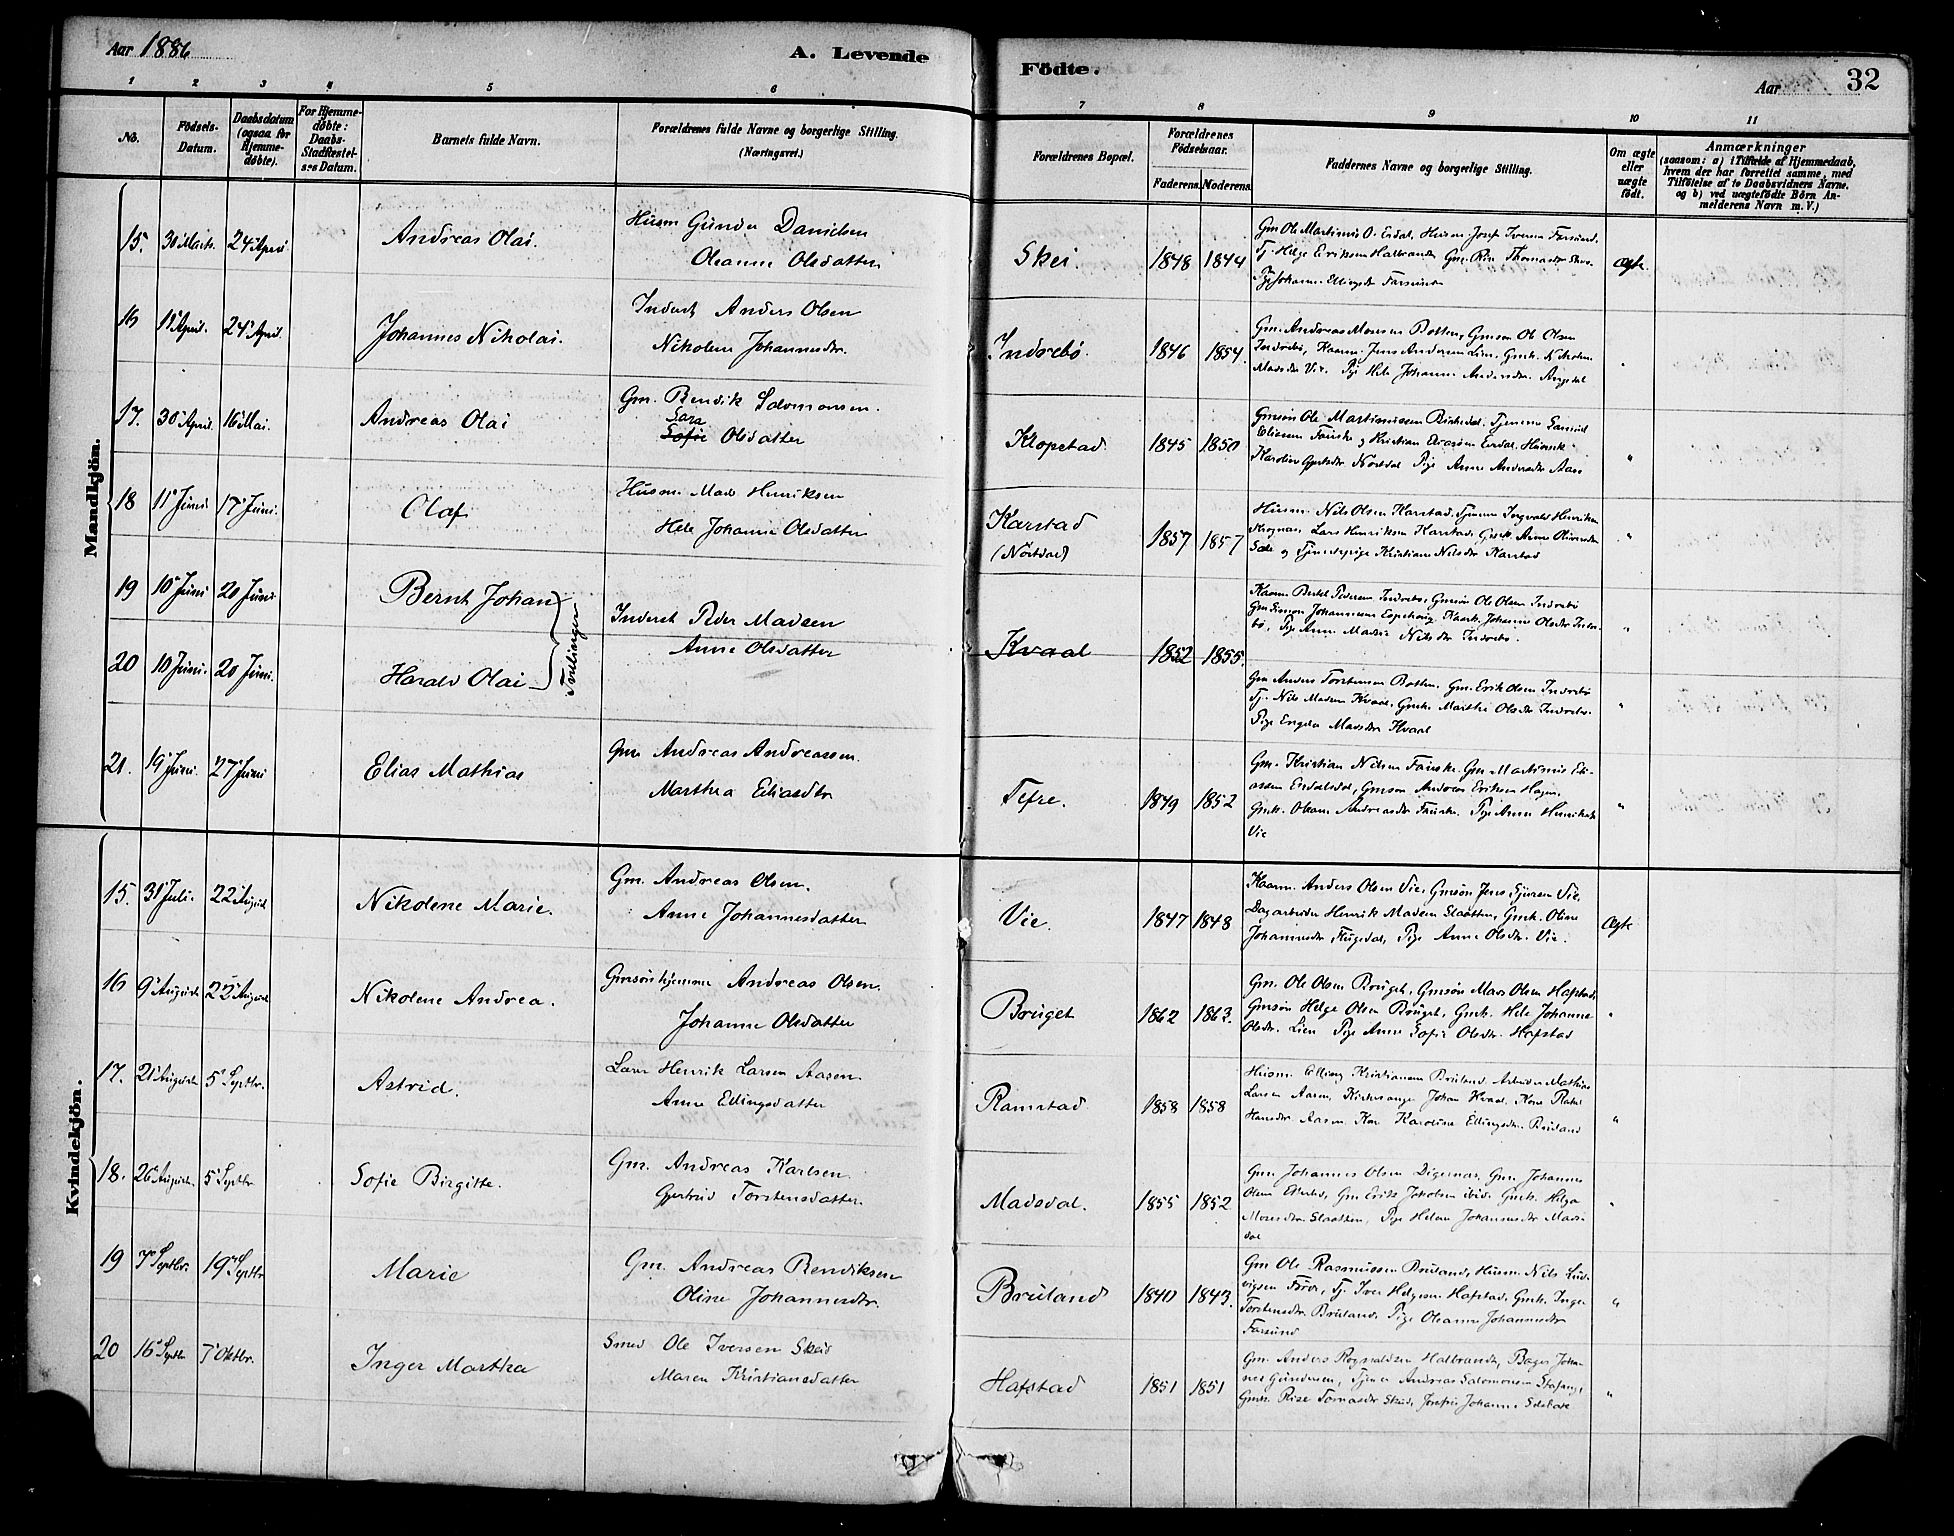 Aar 1886
A. Levende
Födte.
Aar
32
1 2 3 4 5 6 7 8 9 10 11
No.
Födsels-
Datum.
Daabsdatum
(ogsaa for
Hjemme-
döbte).
For Hjemme-
døbte:
Daabs-
Stadfæstel-
ses Datum.
Barnets fulde Navn.
Forældrenes fulde Navne og borgerlige Stilling.
(Næringsvei.)
Forældrenes Bopæl.
Forældrenes
Födselsaar.
Faderens. Moderens.
Faddernes Navne og borgerlige Stilling.
Om ægte
eller
uægte
født.
Anmærkninger
(saasom: a) i Tilfælde af Hjemmedaab,
hvem der har forrettet samme, med
Tilföielse af to Daabsvidners Navne.
og b) ved uægtefödte Börn An-
melderens Navn m. V.)
Mandkjön.
15. 30 Marts. 24 April Andreas Olai.
Husm Gunder Danielsen
Oleanne Olsdatter
Skei. 1848 1844
Gm Ole Martinus O. Erdal, Husm Josef Iversen Farsund,
Tj. Helge Eriksen Halbrand, Gmk. Thomasdtr Skei
Pige Johanne Ellingsdtr Farsund
Ægte.
16 11 April. 24 April. Johannes Nikolai.
Inderst Anders Olsen
Nikoline Johannesdr.
Indrebö. 1846 1854.
Gm. Andreas Monsen Botten, Gmsön Ole Olsen
Indrebö, Kaarm. Jens Andersen Lien, Gmk. Nikoline
Madsdr Vie. Pige Hele Johanne Andersdr. Angedal
"
17. 30 April. 16 Mai. Andreas Olai
Gm. Bendik Salomonsen.
Sara
Sofie Olsdatter
Klopstad. 1845 1850
Gmsön Ole Martinussen Birkedal. Tjenere Samuel
Eliesen Farsund og Kristian Erdal. Husmk
Karoline Nordal Pige Anne Andersdr Aase
"
18 11 Juni. 17 Juni. Olaf
Husm. Mads Henriksen
Hele Johanne Olsdatter
Karstad
(Nördal)
1857 1857
Husm. Nils Olsen Karstad, Tjener Ingvald Henriksen
Lars Henriksen Karstad, Gmk. Anne Olsdr
og Tjenestepige Kristiane Nilsdr Karstad
"
19 10 Juni 20 Juni. Bernt Johan
20 10 Juni. 20 Juni. Harald Olai
Tvillinger
Inderst Peder Madsen
Anne Olsdatter
Kvaal 1852 1855.
Kaarm Bertel Pedersen Indrebö, Gmsön Ole Olsen Indrebö
Gm Simon Johannesen Espehaug. Kaark. Johanne Olsdr Indre-
bö, Pige Anne Nilsdr Indrebö.
"
Gm Anders Torstensen Botten, Gm. Erik Olsen Indrebö
Tj. Nils Madsen Kvaal, Gmk. Marthe Olsdr Indrebö.
Pige Engelen Madsdr Kvaal
"
21. 19 Juni. 27 Juni Elias Mathias
Gm. Andreas Andreassen.
Marthea Eliasdtr
Tefre. 1849 1852
Gm. Kristian Nilsen Farsund. Gm Martinus Eli-
assen Erdalsdal, Gmsön Andreas Eriksen Hagen,
Gmk. Oleane Andreasdr Farsund. Pige Anne Henriksdr
Vie
"
Kvindekjön.
15. 31 Juli. 22 August Nikolene Marie.
Gm. Andreas Olsen.
Anne Johannesdatter
Vie. 1847 1848
Kaarm. Anders Olsen Vie, Gmsön Jens Sjursen Vie,
Dagarbeider Henrik Madsen Slaatten, Gmk. Oline
Johannesdr Flugedal, Pige Anne Olsdr. Vie.
Ægte
16 9 August 22 August Nikolene Andrea.
Gmsön hjemme Andreas Olsen.
Johanne Olsdatter
Bruget 1862 1863.
Gm. Ole Olsen Bruget, Gmsön Mads Olsen Hafstad,
Gmsön Helge Olsen Bruget, Gmk. Hele Johanne
Olsdr. Lien Pige Anne Sofie Olsdr. Hafstad
"
17. 21 August 5 Septbr. Astrid.
Lærer Henrik Larsen Aasen.
Anne Ellingsdatter
Ramstad 1858 1858
Husm. Elling Kristiansen Bruland, Arbeider Mathias
Larsen Aasen, Kirkesanger Johan Kvaal. Kone Rakel
Hansdr. Aasen. Karoline Ellingsdr. Bruland
"
18. 26 August. 5 Septbr Sofie Birgitte.
Gm. Andreas Karlsen.
Gjertrud Torstensdatter.
Madsdal. 1855 1852
Gm. Johannes Olsen Digernæs, Gm Johannes
Olsen, Gm Erik Jakobsen ibid. Gmk. Helga
Monsdr. Slaatten, Pige Helene Johannesdr Mads-
dal
"
19 7 Septbr. 19 Septbr Marie
Gm. Andreas Bendiksen
Oline Johannesdtr.
Bruland 1840 1843.
Gm Ole Rasmussen Bruland, Husm. Nils Lud-
vigsen Förde, Tj. Iver Helgesen Hafstad, Gmk. Inger
Torstensdr. Bruland. Pige Oleanne Johannesdr
Farsund
"
20 16 Septbr 7 Oktbr. Inger Marthea
Smed Ole Iversen Skeid
Maren Kristiansdatter
Hafstad 1851 1851
Gm. Anders Rognaldsen Halbrand, Bager Johan-
nes Gundersen, Tjener Andreas Salomonsen
Gmk. Rise Tomasdr Skeid, Josefine Johanne
"